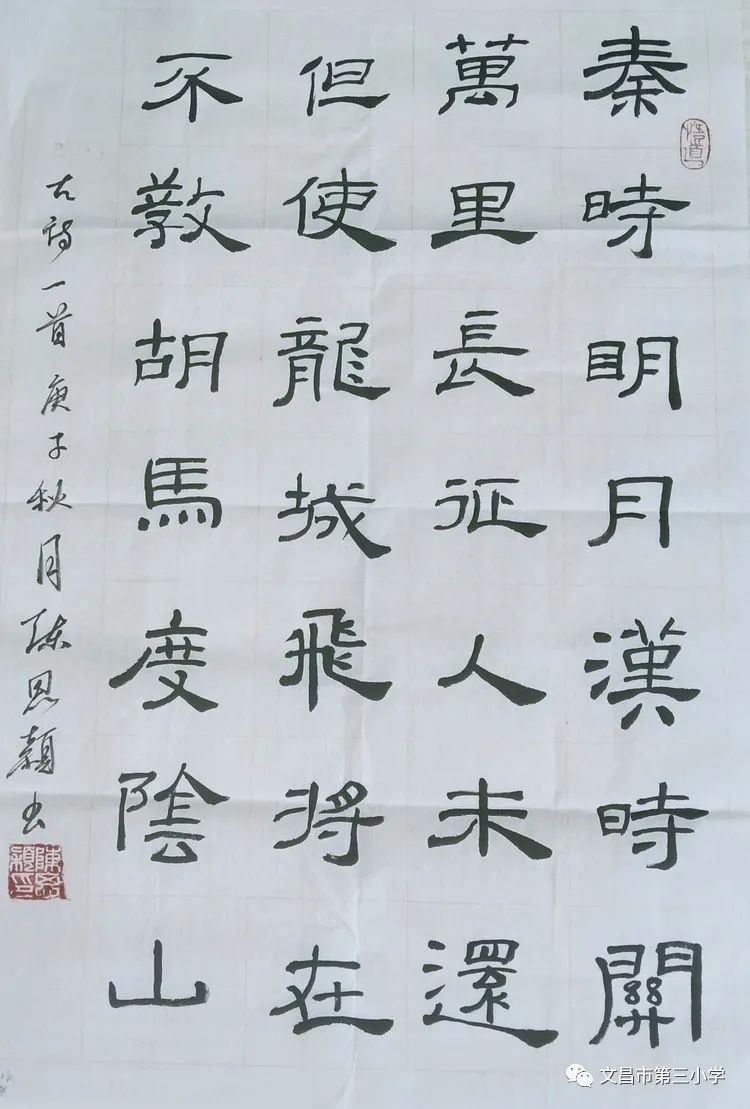 秦時明月漢時關
萬里長征人未還
但使龍城飛將在
不敎胡馬度陰山
古詩一首庚子秋月陈恩颜书
文昌市第三小学